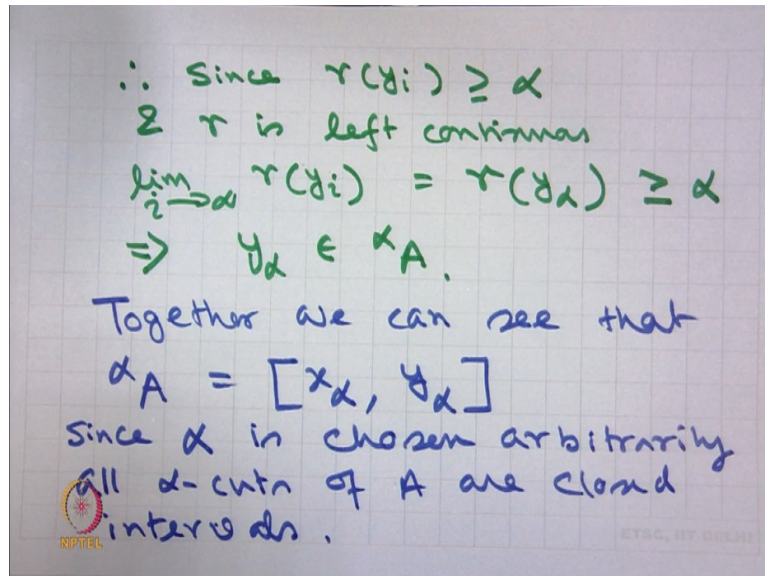 ∴ Since r(yi) ≥ α
& r is left continuous
lim i→∞ r(yi) = r(yα) ≥ α
⇒ yα ∈ αA.
Together we can see that
αA = [xα, yα]
Since α is chosen arbitrarily
all α-cuts of A are closed
intervals.
NPTEL
ETSC, IIT DELHI